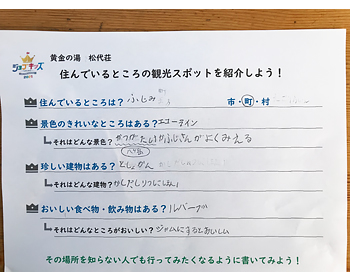 黄金の湯 松代荘
ジョブキッズ
住んでいるところの観光スポットを紹介しよう！
住んでいるところは？ふじみ 市・町・村
景色のきれいなところはある？エコーライン
それはどんな景色？ かつがたけ ふじさんがよくみえる
珍しい建物はある？としょかん
それはどんな建物？かしだし
おいしい食べ物・飲み物はある？ルバーブ
それはどんなところがおいしい？ジャムにするとおいしい
その場所を知らない人でも行ってみたくなるように書いてみよう！